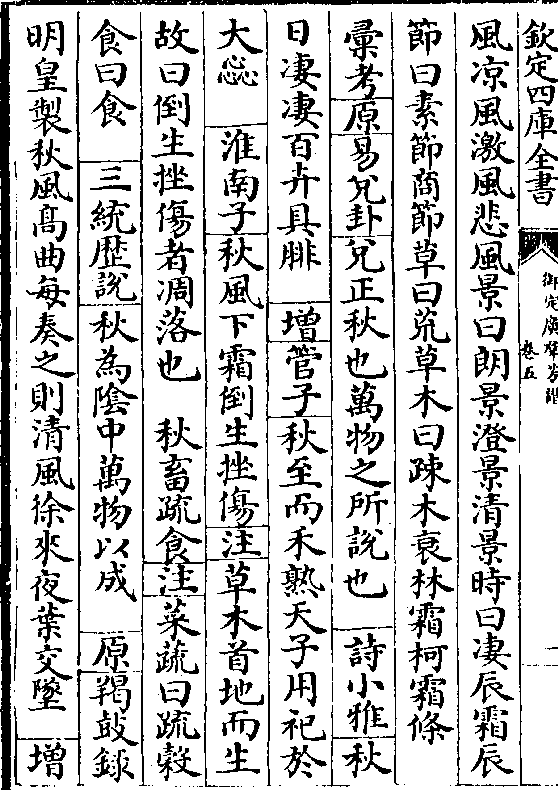 欽定四庫全書
御定廣羣芳譜
卷五
一
風凉風激風悲風景曰朗景澄景清景時曰凄辰霜辰
節曰素節商節草曰荒草木曰疎木衰林霜柯霜條
彚考原易兌卦兌正秋也萬物之所說也 詩小雅秋
日凄凄百卉具腓 増管子秋至而禾熟天子用祀於
大惢 淮南子秋風下霜倒生挫傷注草木首地而生
故曰倒生挫傷者凋落也 秋畜疏食注菜蔬曰疏穀
食曰食 三統歴說秋為陰中萬物以成 原羯鼓錄
明皇製秋風髙曲每奏之則清風徐來夜葉交墜 増